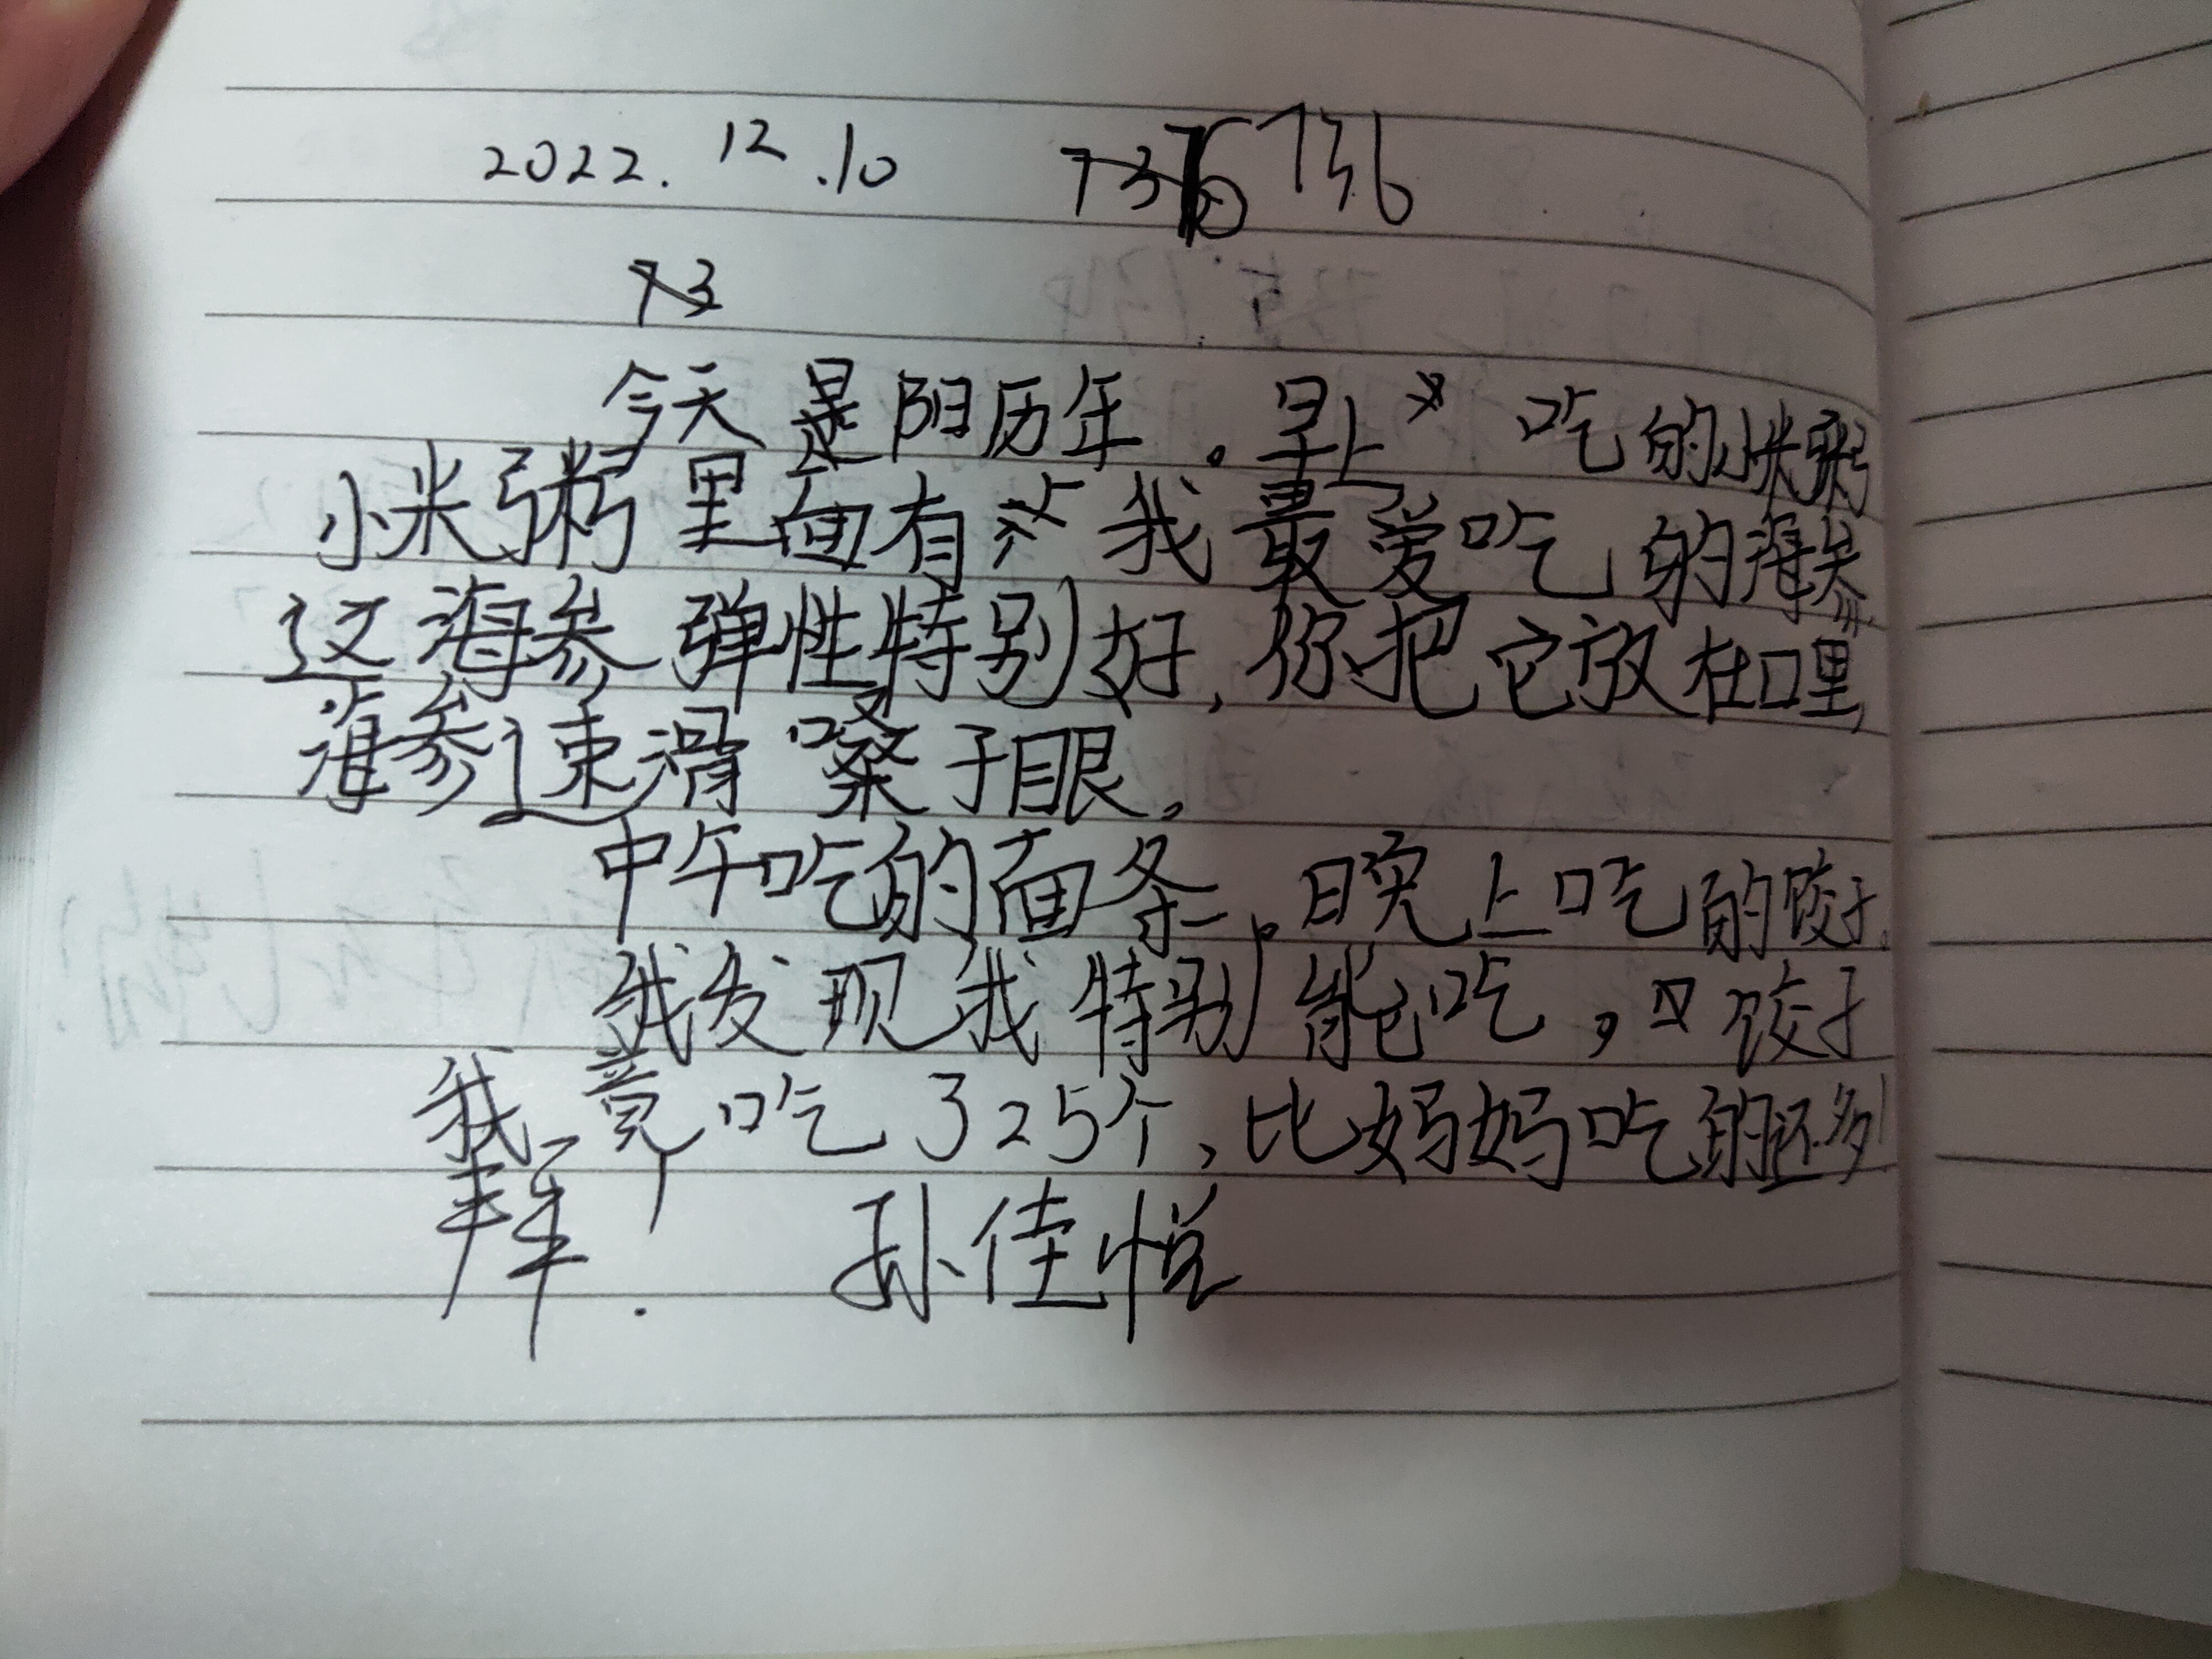 2022.12.10 736
今天是阳历年。早上吃的小米粥
小米粥里面有我最爱吃的海参
这海参弹性特别好,你把它放在口里,
海参速滑嗓子眼。
中午吃的面条。晚上吃的饺子。
我发现我特别能吃,饺子
我竟吃了25个,比妈妈吃的还多!
拜了! 孙佳悦